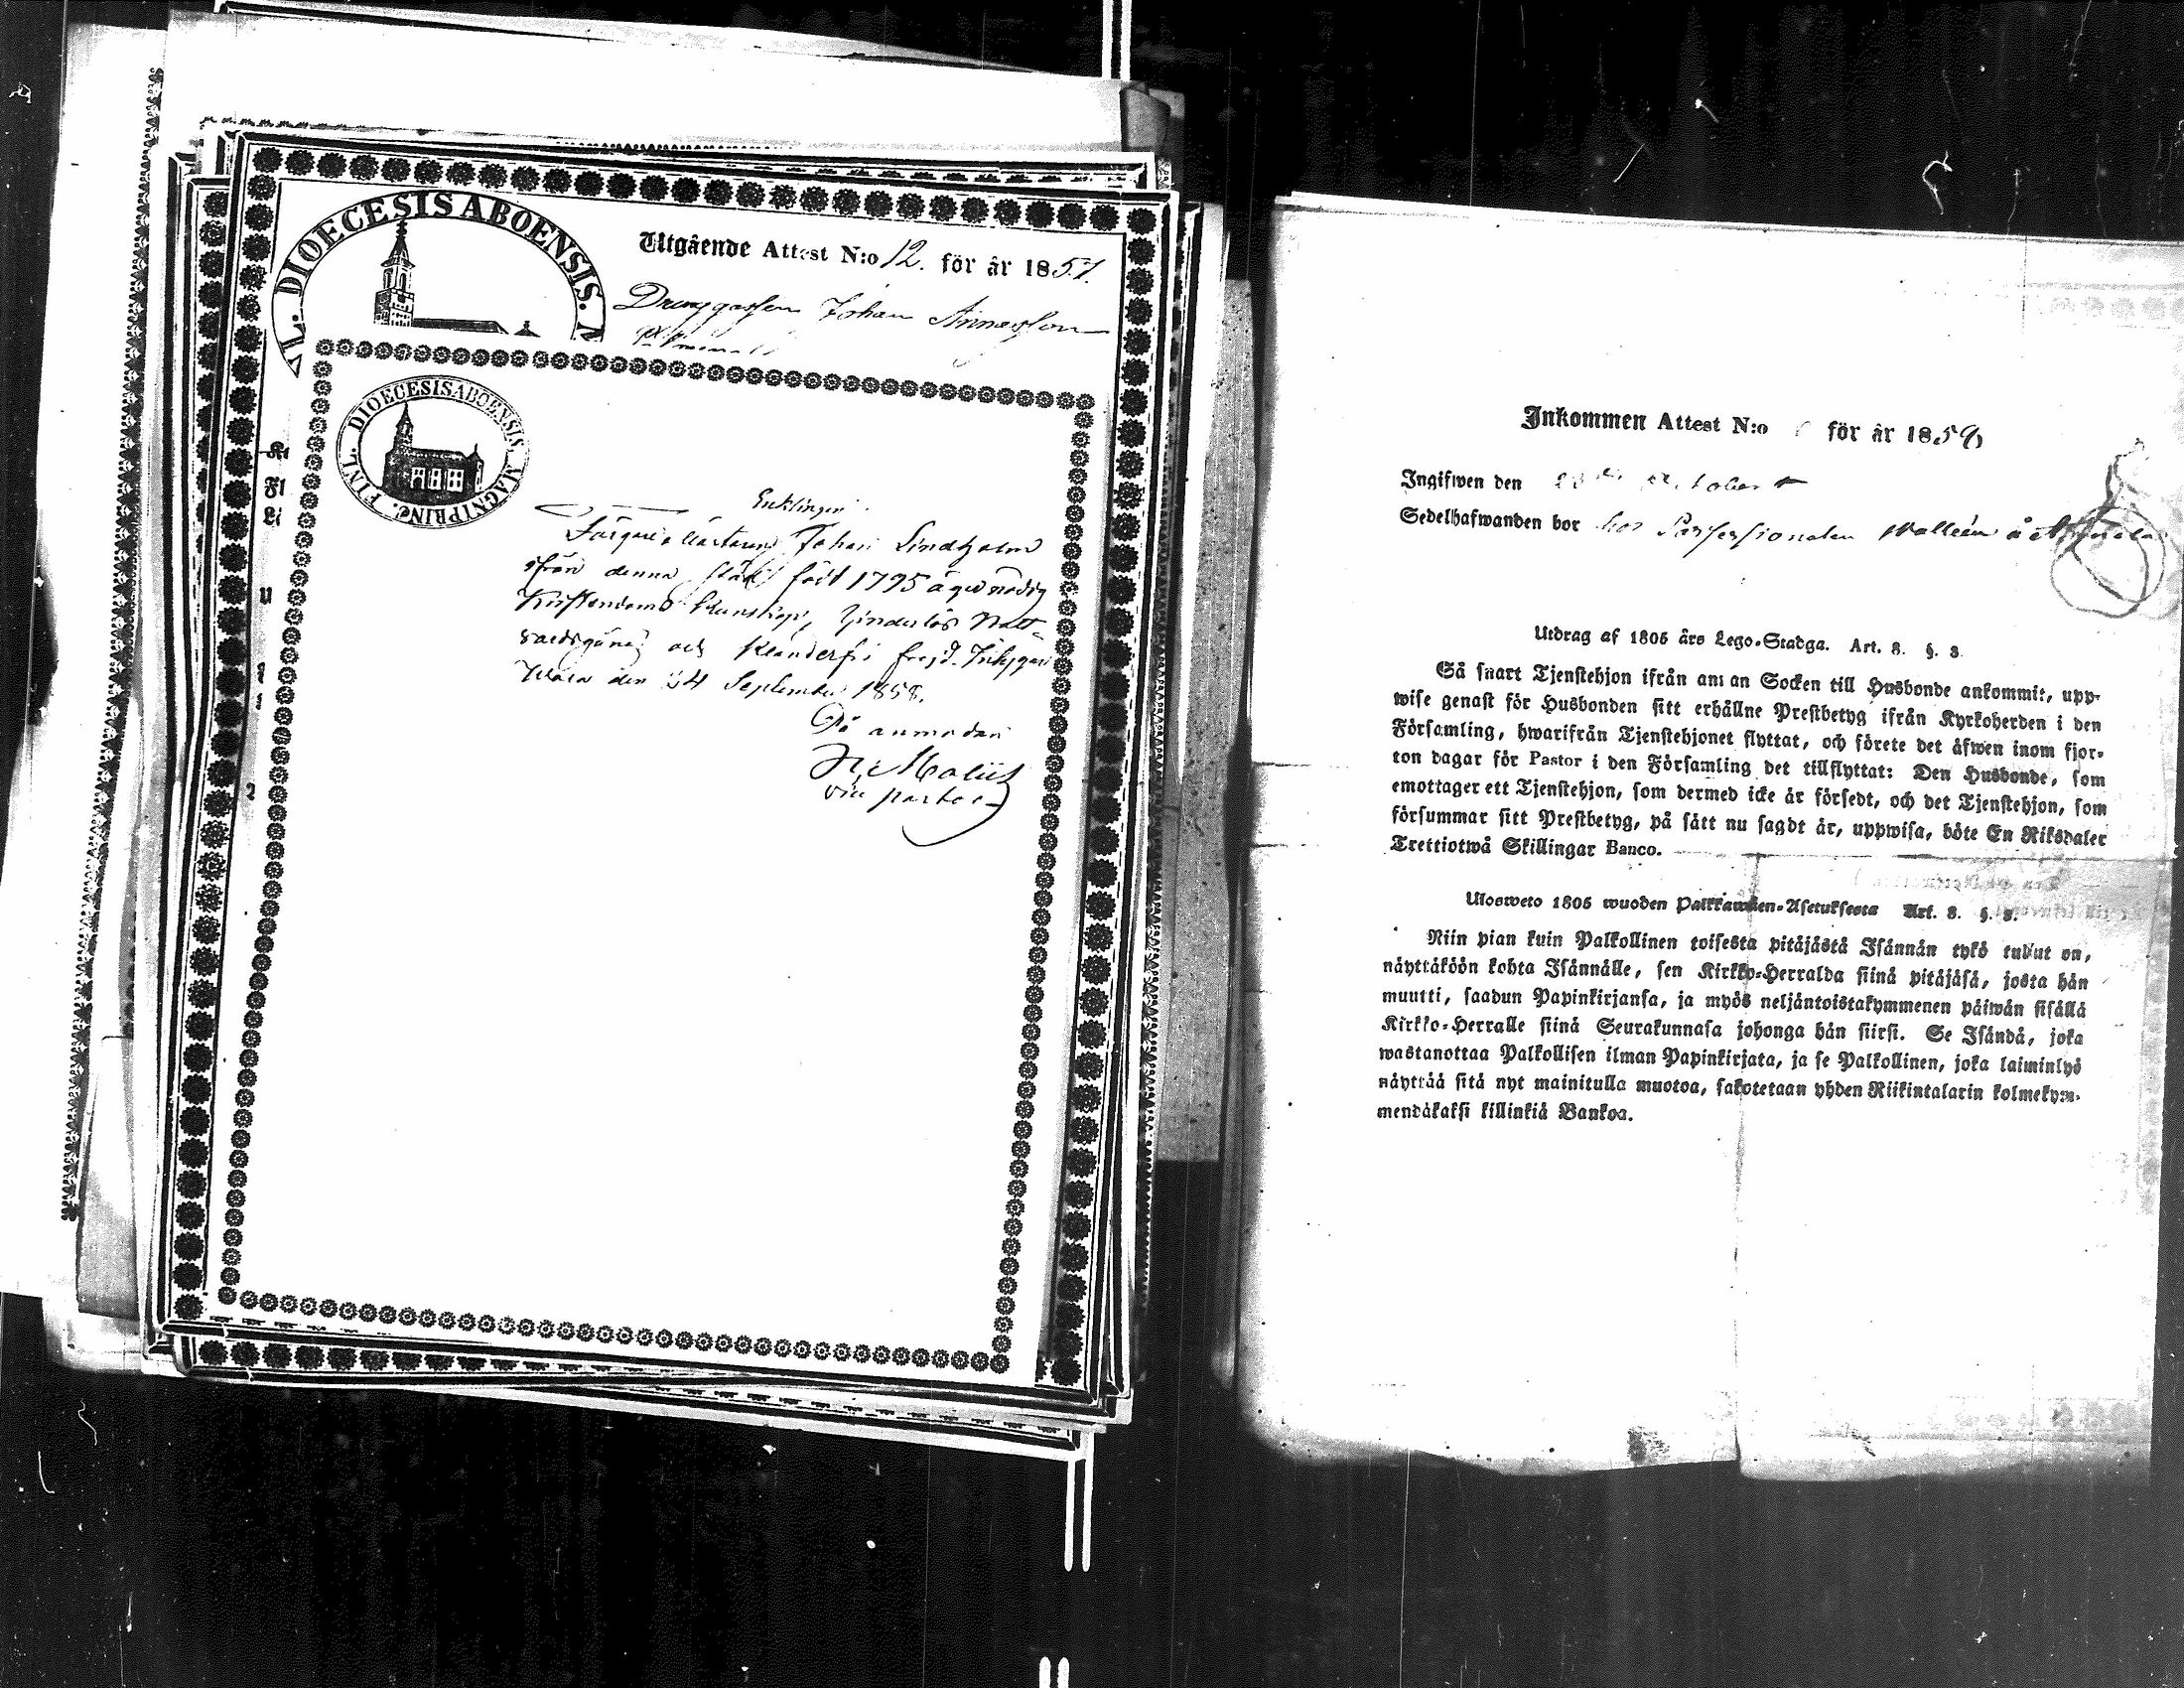 DIOECESIS ABOENSIS.
Utgående Attest N:o 12. för år 1857.
Drenggossen Johan Annasson
FINL. DIOECESIS ABOENSIS. MAGNI PRINC.
Enklingen
Johan Lindholm
ifrån denna stad född 1795 äger nödig
Kristendoms kunskap, hinderlös Natt-
vardsgång och klanderfri frejd.
den 24 September 1858.
På anmodan
vice pastor
Inkommen Attest N:o för år 1859
Ingifwen den October
Sedelhafwanden bor hos Possessionaten Walleen å
Utdrag af 1805 års Lego-Stadga. Art. 8. §. 8.
Så snart Tjenstehjon ifrån annan Socken till Husbonde ankommit, upp-
wise genast för Husbonden sitt erhållne Prestbetyg ifrån Kyrkoherden i den
Församling, hwarifrån Tjenstehjonet flyttat, och förete det äfwen inom fjor-
ton dagar för Pastor i den Församling det tillflyttat: Den Husbonde, som
emottager ett Tjenstehjon, som dermed icke är försedt, och det Tjenstehjon, som
försummar sitt Prestbetyg, på sätt nu sagdt är, uppwisa, böte En Riksdaler
Trettiotwå Skillingar Banco.
Ulosweto 1805 wuoden Palkkawäen-Asetuksesta Art. 8. §. 8.
Niin pian kuin Palkollinen toisesta pitäjästä Isännän tykö tullut on,
näyttäköön kohta Isännälle, sen Kirkko-Herralda siinä pitäjäsä, josta hän
muutti, saadun Papinkirjansa, ja myös neljäntoistakymmenen päiwän sisällä
Kirkko-Herralle siinä Seurakunnasa johonga hän siirsi. Se Isändä, joka
wastanottaa Palkollisen ilman Papinkirjata, ja se Palkollinen, joka laiminlyö
näyttää sitä nyt mainitulla muotoa, sakotetaan yhden Riikintalarin kolmekym-
mendäkaksi killinkiä Bankoa.